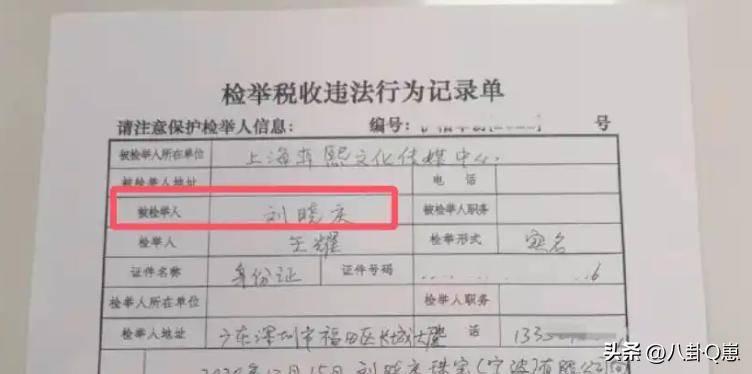 检举税收违法行为记录单
请注意保护检举人信息: 编号: 号
被检举人所在单位 上海菲熙文化传媒中心
被检举人地址 电话
被检举人 刘晓庆 被检举人职务
检举人 王耀 检举形式 实名
证件名称 身份证 证件号码 6
检举人所在单位 检举人职务
检举人地址 广东深圳市福田区长城大厦 话 133
12月15日刘晓庆珠宝(宁波)有限公司
头条 @八卦Q崽